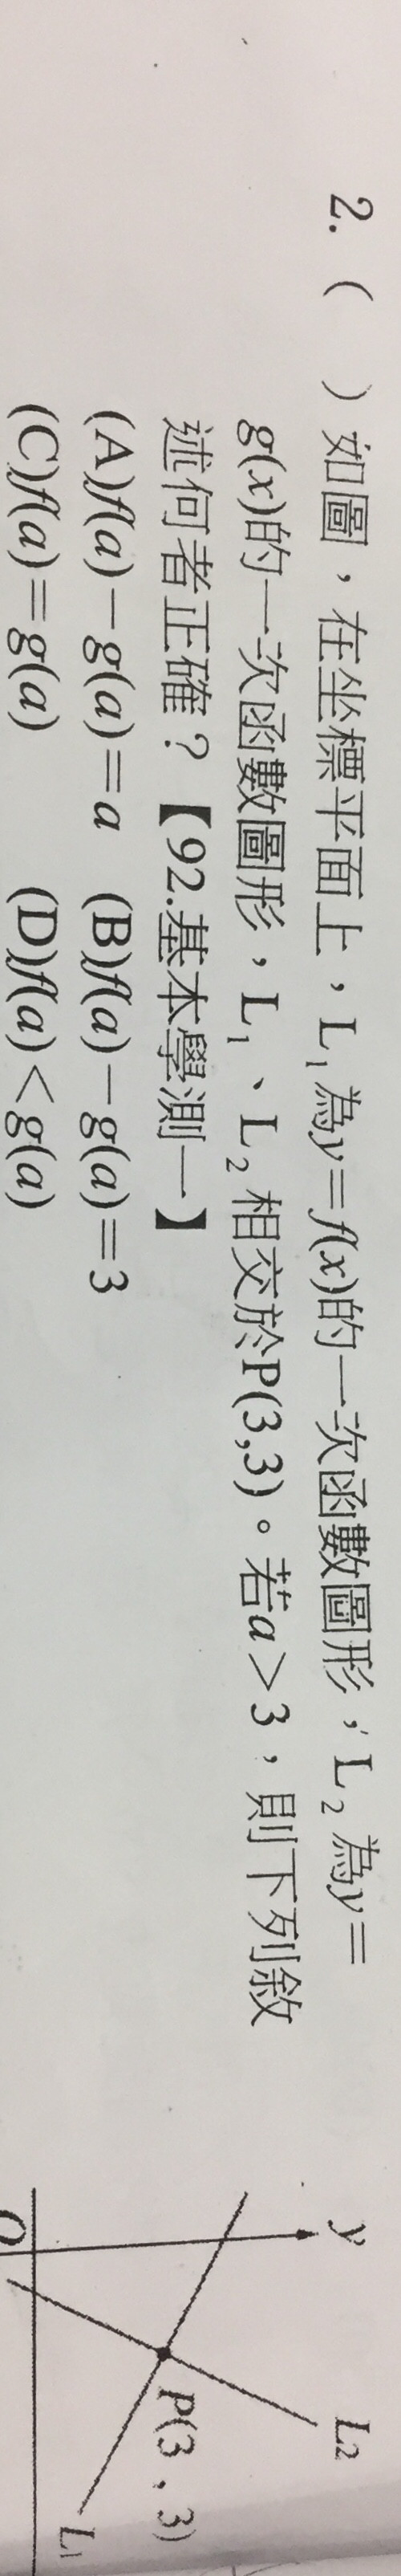 2. (　) 如圖，在坐標平面上，L₁為y=f(x)的一次函數圖形，L₂為y=
g(x)的一次函數圖形，L₁、L₂相交於P(3,3)。若a>3，則下列敘
述何者正確？【92.基本學測一】
(A)f(a)−g(a)=a　(B)f(a)−g(a)=3
(C)f(a)=g(a)　(D)f(a)<g(a)
y
L₂
P(3，3)
L₁
O